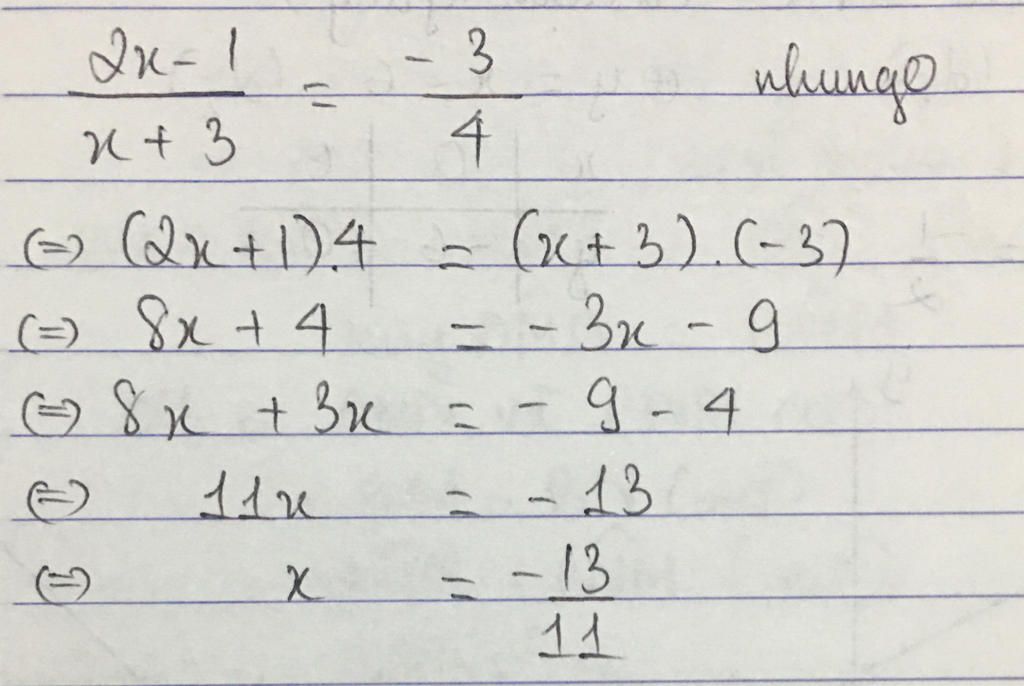 2x - 1 / x + 3 = - 3 / 4 nhungo
(=) (2x + 1).4 = (x + 3).(-3)
(=) 8x + 4 = - 3x - 9
(=) 8x + 3x = - 9 - 4
(=) 11x = - 13
(=) x = - 13 / 11